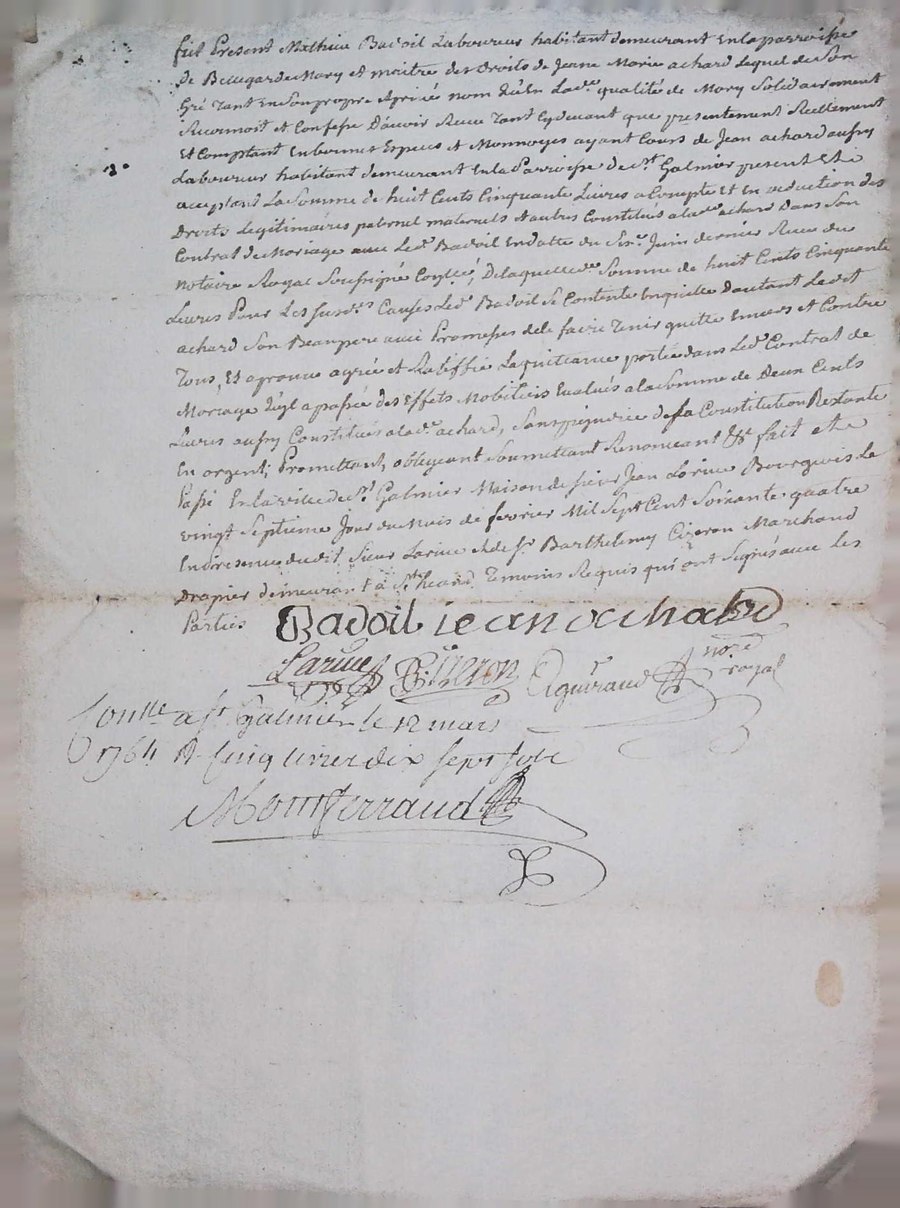 fut Présent Mathieu Badoil Laboureur habitant demeurant En la parroisse
de Bellegarde Mary et maitre des droits de Jeane Marie achard Lequel de Son
Gré Tant En Son propre Et privé nom qu'En Lad.e qualité de Mary Solidairement
Reconnoit et Confesse D'avoir Receu Tant Cydevant que presentement Reellement
Et Comptant En bonnes Especes et Monnoyes ayant Cours de Jean achard aussy
Laboureur habitant demeurant En la Parroisse de St. Galmier present Et
acceptant La Somme de huit Cents Cinquante Livres a Compte Et En deduction des
Droits Legitimaires paternel maternels et autres Constitués a lad.e achard Dans Son
Contrat de Mariage avec Led. Badoil En datte du Six.e Juin dernier Receu du
notaire Royal Soussigné Con.llé, De laquelle d.e Somme de huit Cents Cinquante
Livres Pour Les susd.es Causes Led. Badoil Se Contente En quitte D'autant Ledit
achard Son Beaupere avec Promesses de le faire Tenir quitte Envers et Contre
Tous, Et aprouve agrée et Ratiffie La quittance portée dans Led. Contrat de
Mariage qu'il a passée des Effets Mobiliers Evalués a la Somme de Deux Cents
Livres aussy Constitués a lad.e achard, Sans prejudice de sa Constitution Restante
En argent; Promettant, obligeant Soumettant Renonceant &.a fait et
Passé En la ville de St. Galmier Maison de sieur Jean Larive Bourgeois Le
vingt Septieme Jour du Mois de fevrier Mil Sept Cent Soixante quatre
En presence dudit Sieur Larive et de Sr. Barthelemy Cizeron Marchand
Drapier demeurant a St. heand Temoins Requis qui ont Signés avec les
Parties
Badoil jean achard
Larive B. Cizeron Aguiraud no.re royal
Con.llé a St. Galmier le 12 mars
1764 R. Cinq livres dix sept sols
Montferraud